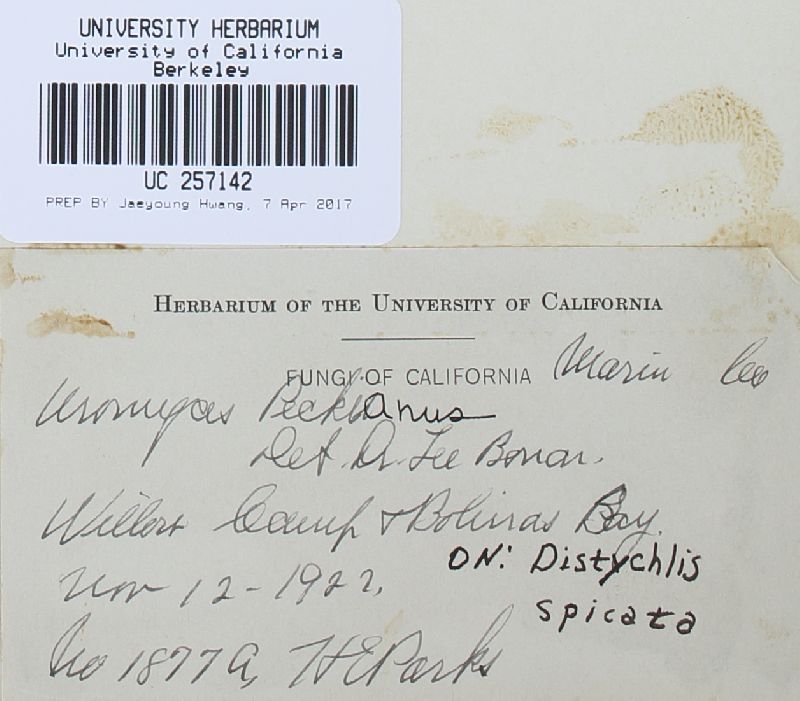 UNIVERSITY HERBARIUM
University of California
Berkeley
UC 257142
PREP BY Jaeyoung Hwang, 7 Apr 2017
HERBARIUM OF THE UNIVERSITY OF CALIFORNIA
FUNGI OF CALIFORNIA Marin Co
Uromyces Peckianus
Det. Dr. Lee Bonar.
Camp & Bolinas Bay.
Nov 12-1922.
ON: Distychlis
spicata
No 1877A, HE Parks